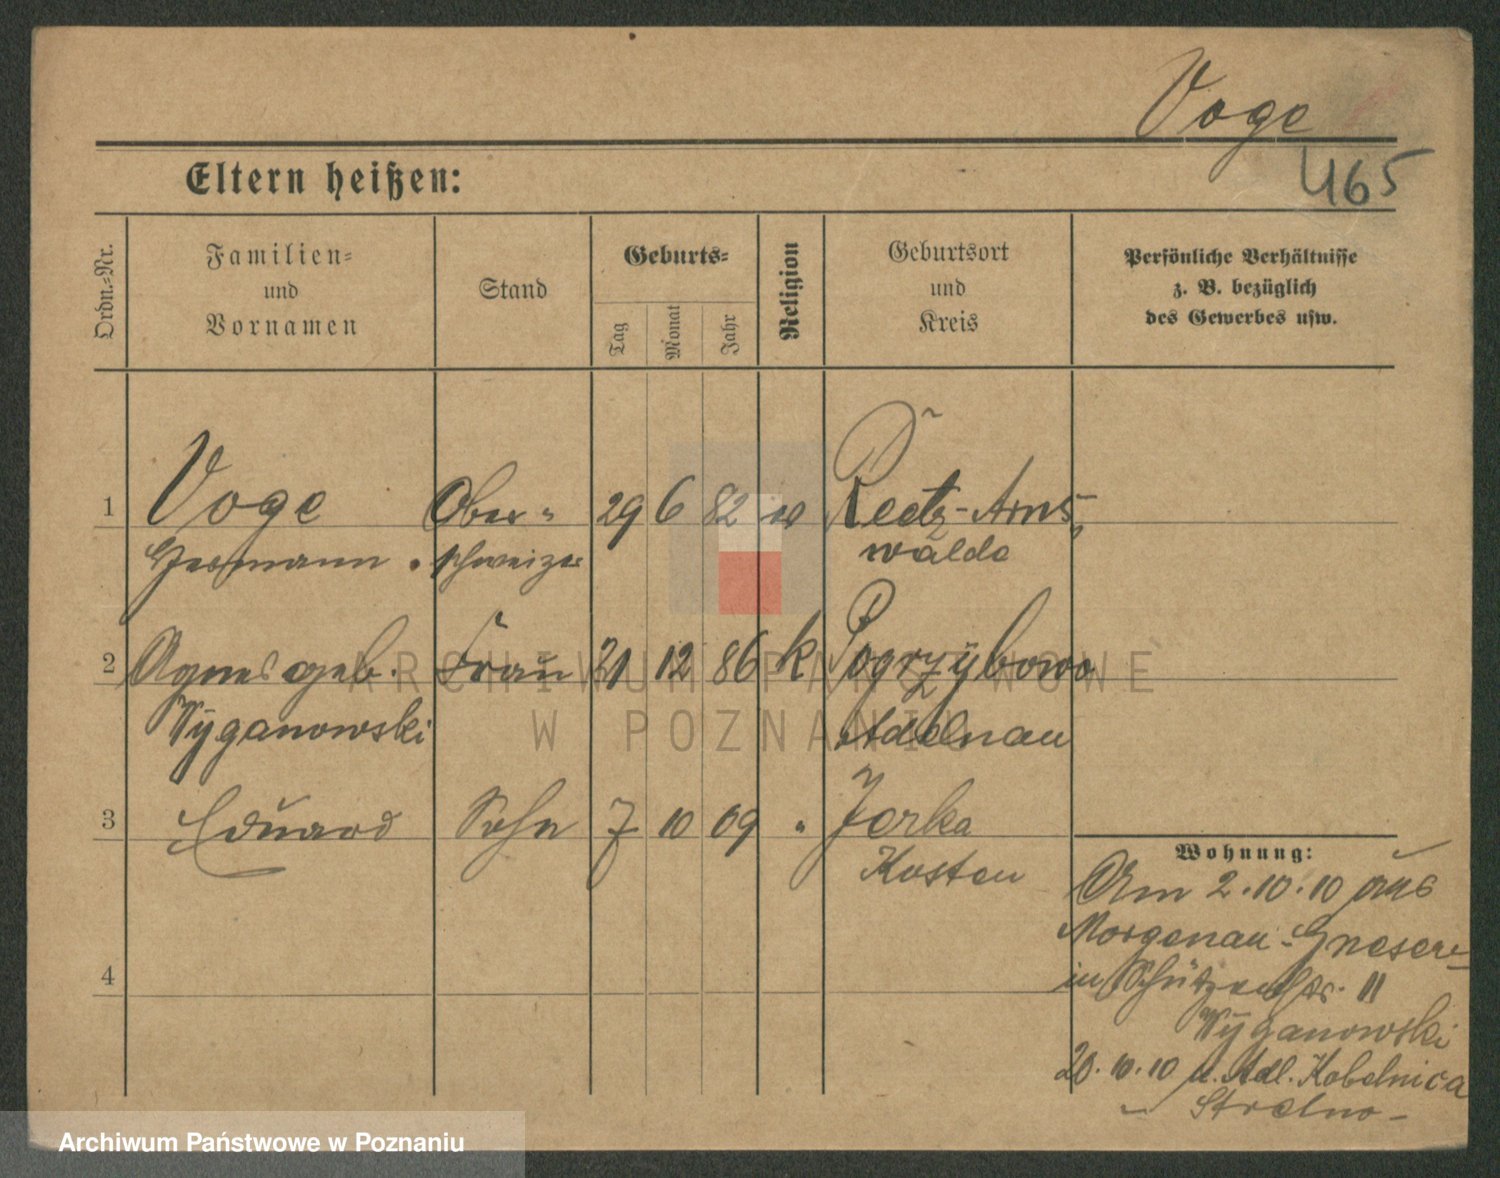 Voge
465
Eltern heißen:
Ordn.-Nr.
Familien-
und
Vornamen
Stand
Geburts-
Tag
Monat
Jahr
Religion
Geburtsort
und
Kreis
Persönliche Verhältnisse
z. B. bezüglich
des Gewerbes usw.
1 Voge Ober- 29 6 82 Reetz-Arns-
Hermann schweizer walde
2 Agnes geb. Frau 21 12 86 k Pogrzybowo
Wyganowski Adelnau
3 Eduard Sohn 7 10 09 " Jerka
Kosten
4
Wohnung:
Am 2.10.10 aus
Morgenau-Gnesen
in Schützenstr. 11
Wyganowski
20.10.10 n. Adl. Kobelnica
Strelno
ARCHIWUM PAŃSTWOWE
W POZNANIU
Archiwum Państwowe w Poznaniu